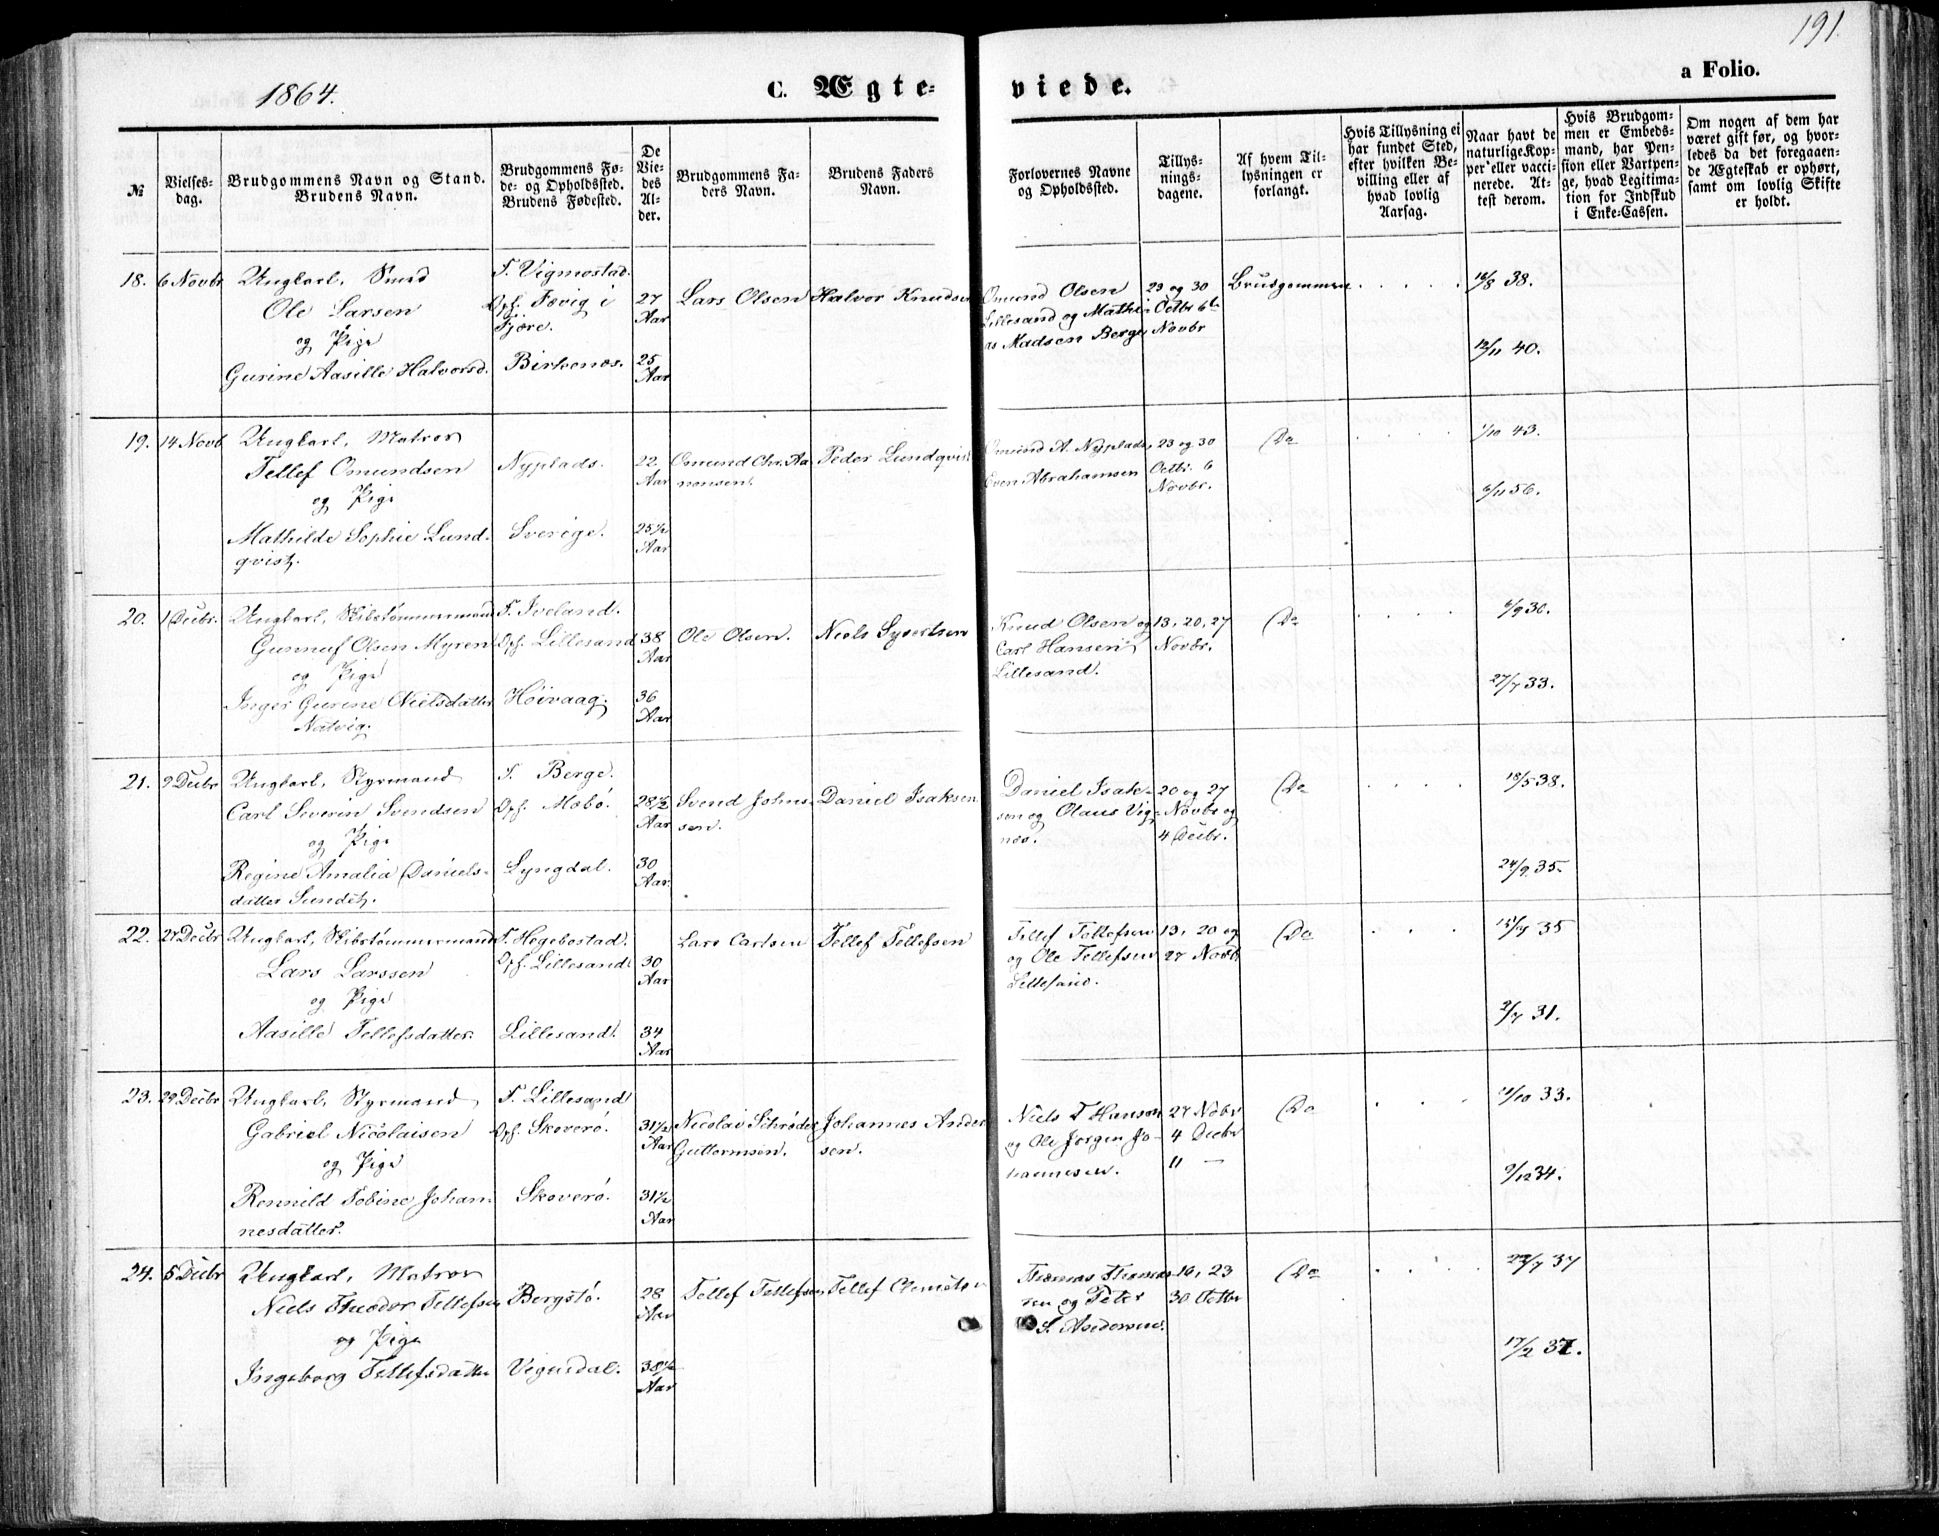 191.
1864.
C. Ægte-
viede.
a Folio.
№
Vielses-
dag.
Brudgommens Navn og Stand.
Brudens Navn.
Brudgommens Fø-
de- og Opholdssted.
Brudens Fødested.
De
Vie-
des
Al-
der.
Brudgommens Fa-
ders Navn.
Brudens Faders
Navn.
Forlovernes Navne
og Opholdssted.
Tillys-
nings-
dagene.
Af hvem Til-
lysningen er
forlangt.
Hvis Tillysning ei
har fundet Sted,
efter hvilken Be-
villing eller af
hvad lovlig
Aarsag.
Naar havt de
naturlige Kop-
per eller vacci-
nerede. At-
test derom.
Hvis Brudgom-
men er Embeds-
mand, har Pen-
sion eller Vartpen-
ge, hvad Legitima-
tion for Indskud
i Enke-Cassen.
Om nogen af dem har
været gift før, og hvor-
ledes da det foregaaen-
de Ægteskab er ophørt,
samt om lovlig Skifte
er holdt.
18.
6 Novbr
Ungkarl, Smed
Ole Larsen
og Pige
Gurine Aasille Halvorsd.
F. Vigmostad.
Oph. Fævig i
Fjære.
Birkenæs.
27
Aar
25
Aar
Lars Olsen
Halvor Knudsen
Omund Olsen
Lillesand og Mathi-
as Madsen Berge
23 og 30
Octbr 6te
Novbr
Brudgommen
16/8 38.
12/11 40.
19.
14 Novb.
Ungkarl, Matros
Tellef Omundsen
og Pige
Mathilde Sophie Lund-
qvist.
Nyplads.
Sverige.
22
Aar
25½
Aar
Omund Chr. Aa-
nonsen.
Peder Lundqvist
Omund A. Nyplads,
Even Abrahamsen
23 og 30
Octbr. 6
Novbr.
Do
1/10 43.
6/11 56.
20.
1 Decbr.
Ungkarl, Skibstømmermand
Gunnuf Olsen Myren
og Pige
Inger Gurine Nielsdatter
Natvig.
F. Iveland.
Oph. Lillesand
Høivaag.
38
Aar
36
Aar
Ole Olsen.
Niels Syvertsen
Knud Olsen og
Carl Hansen
Lillesand.
13, 20, 27
Novbr.
Do
6/9 30.
27/7 33.
21.
9 Decbr
Ungkarl, Styrmand
Carl Severin Svendsen
og Pige
Regine Amalia Daniels-
datter Sundet.
F. Berge.
Oph. Mæbø.
Lyngdal.
28½
Aar
30
Aar.
Svend Johns-
sen.
Daniel Isaksen
Daniel Isak-
sen og Olaus Vig-
næs.
20 og 27
Novbr og
4 Decbr.
Do
18/5 38.
24/9 35.
22.
27 Decbr
Ungkarl, Skibstømmermand
Lars Larssen
og Pige
Aasille Tellefsdatter.
F. Hegebostad.
Oph. Lillesand
Lillesand.
30
Aar
34
Aar
Lars Carlsen
Tellef Tellefsen
Tellef Tellefsen
og Ole Tellefsen
Lillesand.
13, 20 og
27 Novbr
Do
15/7 35
2/7 31.
23.
29 Decbr
Ungkarl, Styrmand
Gabriel Nicolaisen
og Pige
Ronnild Tobine Johan-
nesdatter.
F. Lillesand
Oph. Skoverø.
Skoverø.
31½
Aar
31½
Aar
Nicolai Schrøder
Guttormsen.
Johannes Ander-
sen.
Niels T Hansen
og Ole Jørgen Jo-
hannesen.
27 Nobr
4 Decbr
11 —
Do
/10 33.
9/12 34.
24.
5 Decbr
Ungkarl, Matros
Niels Theodor Tellefsen
og Pige
Ingeborg Tellefsdatter
Bergstø.
Vegusdal.
28
Aar
38½
Aar
Tellef Tellefsen
Tellef
Thomas Thomas-
sen og Peter
S. Andersen.
16, 23
30 Octbr
Do
22/7 37
17/2 31.